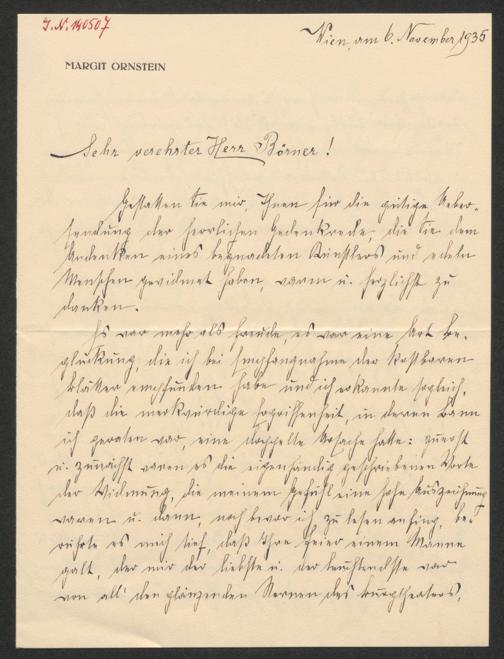 I. N. 140507
Wien, am 6. November 1935
MARGIT ORNSTEIN
Sehr verehrter Herr Börner!
Gestatten Sie mir, Ihnen für die gütige Ueber-
sendung der herrlichen Gedenkrede, die Sie dem
Andenken eines begnadeten Künstlers und edeln
Menschen gewidmet haben, warm u. herzlichst zu
danken.
Es war mehr als Freude, es war eine Art Be-
glückung, die ich bei Empfangnahme der kostbaren
Blätter empfunden habe und ich erkannte sogleich,
daß die merkwürdige Ergriffenheit, in deren Bann
ich geraten war, eine doppelte Ursache hatte: zuerst
u. zunächst waren es die eigenhändig geschriebenen Worte
der Widmung, die meinem Gefühl eine hohe Auszeichnung
waren u. dann, noch bevor ich zu lesen anfing, be-
rührte es mich tief, daß Ihre Feier einem Manne
galt, der mir der liebste u. der leuchtendste war
von all' den glänzenden Sternen des Burgtheaters,